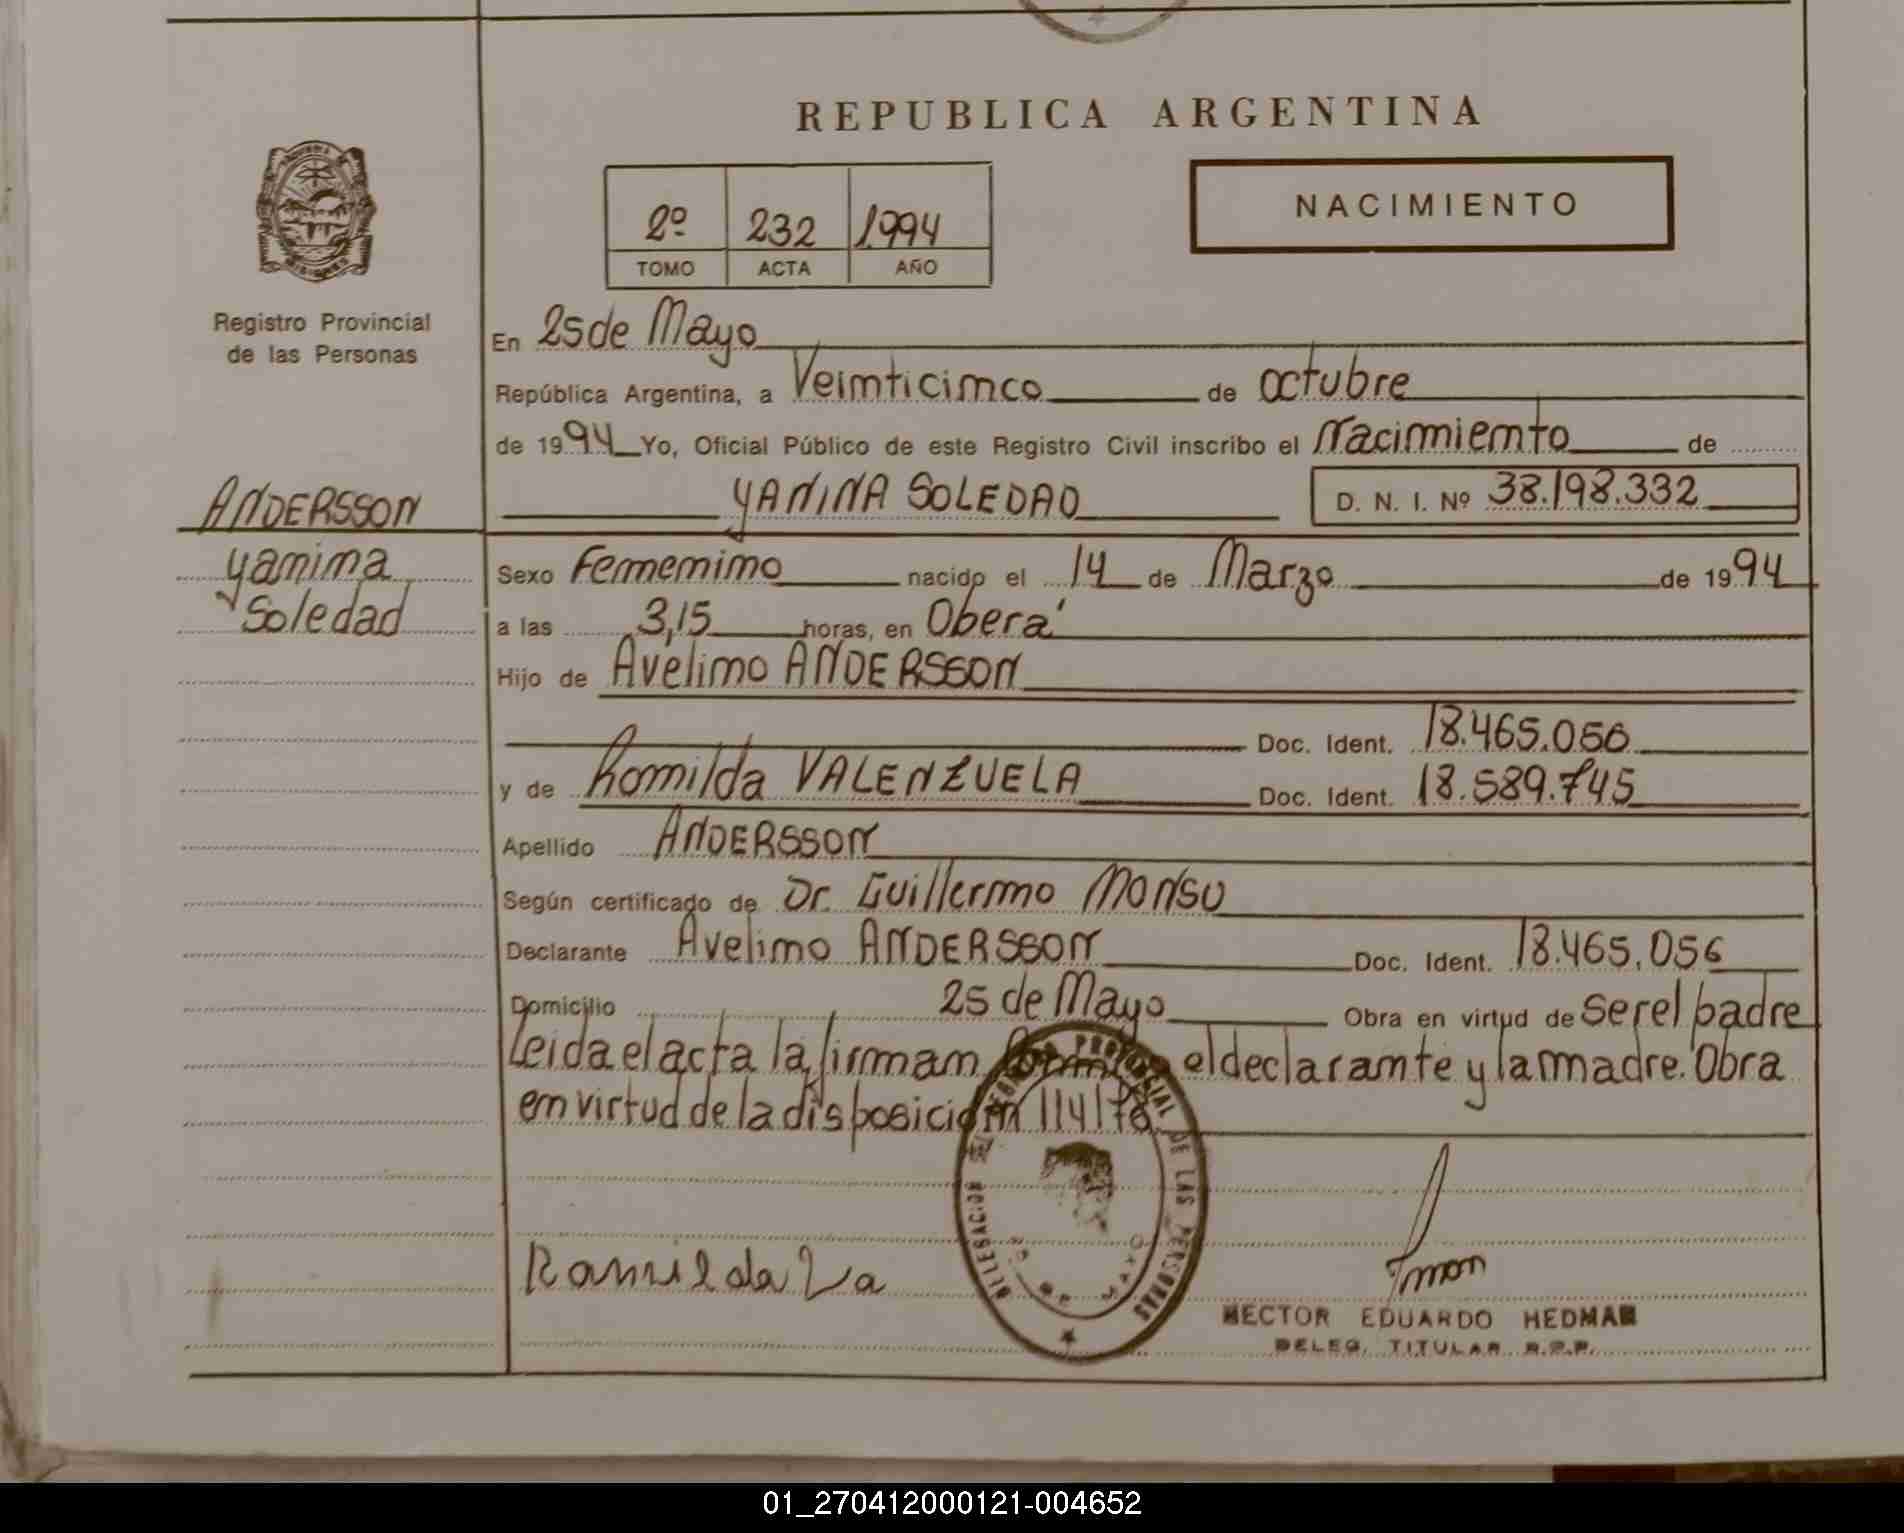 REPUBLICA ARGENTINA
2º 232 1994
TOMO ACTA AÑO
NACIMIENTO
Registro Provincial
de las Personas
En 25 de Mayo
República Argentina, a Veinticinco de octubre
de 1994 Yo, Oficial Público de este Registro Civil inscribo el Nacimiento de
YANINA SOLEDAD D. N. I. Nº 38.198.332
ANDERSSON
Yanina
Soledad
Sexo Femenino nacido el 14 de Marzo de 1994
a las 3,15 horas, en Oberá
Hijo de Avelino ANDERSSON
Doc. Ident. 18.465.056
y de Romilda VALENZUELA Doc. Ident. 18.589.745
Apellido ANDERSSON
Según certificado de Dr. Guillermo MONSU
Declarante Avelino ANDERSSON Doc. Ident. 18.465.056
Domicilio 25 de Mayo Obra en virtud de ser el padre
Leida el acta la firman el declarante y la madre. Obra
en virtud de la disposición 114/76
DELEGACION DEL REGISTRO PROVINCIAL DE LAS PERSONAS
25 DE MAYO
Romilda Va
HECTOR EDUARDO HEDMAN
DELEG. TITULAR R.P.P.
01_270412000121-004652